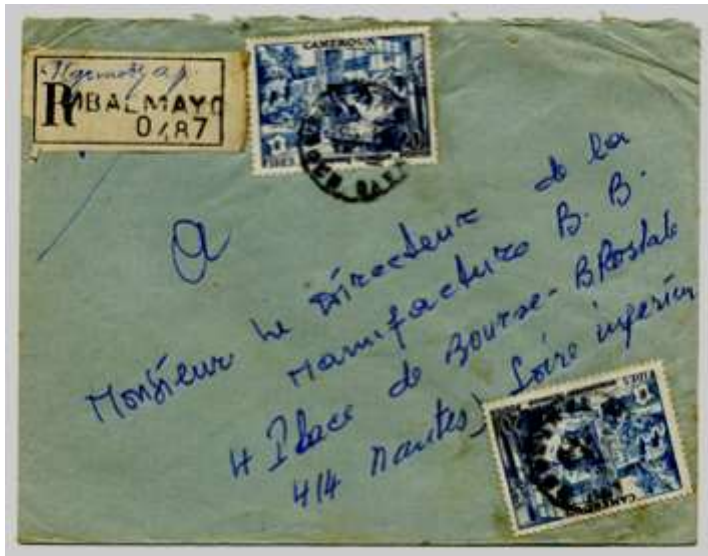 R MBALMAYO
0487
CAMEROUN
FIDES
A
Monsieur le Directeur de la
Manufacture B. B.
4 Place de Bourse - BPostale
414 Nantes) Loire inferieur
FIDES
CAMEROUN